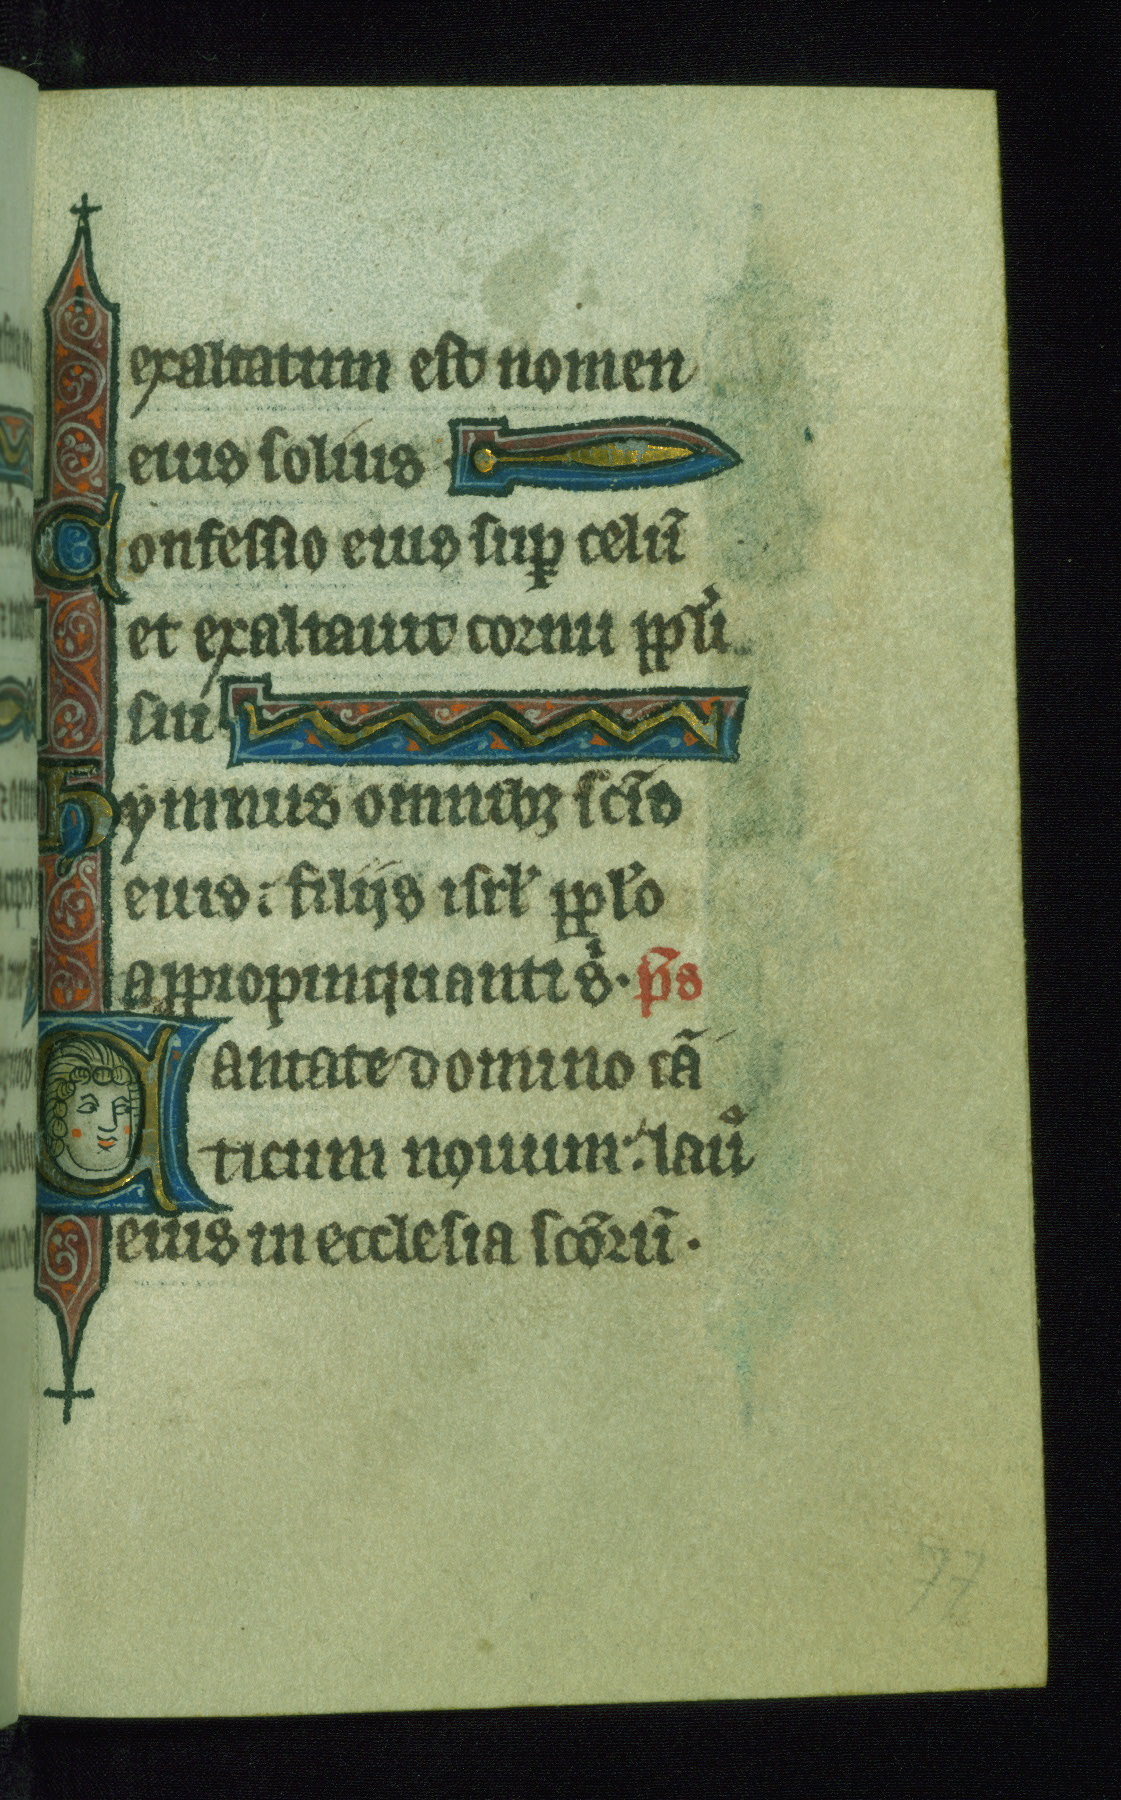 exaltatum est nomen
eius solius
Confessio eius sup celū
et exaltauit cornu ppl̄i
sui
Hymnus omnibꝫ sc̄is
eius : filijs isrl̓ ppl̓o
appropinquanti s̓i · p̄s
Cantate domino cā
ticum nouum : lauᷤ
eius in ecclesia sc̄orū ·
77